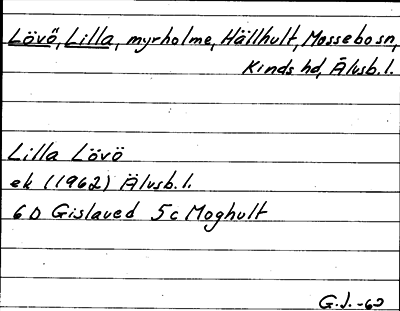 Lövö, Lilla, myrholme, Hällhult, Mossebo sn,
Kinds hd, Älvsb. l.
Lilla Lövö
ek (1962) Älvsb. l.
6D Gislaved 5c Moghult
G.J. -62